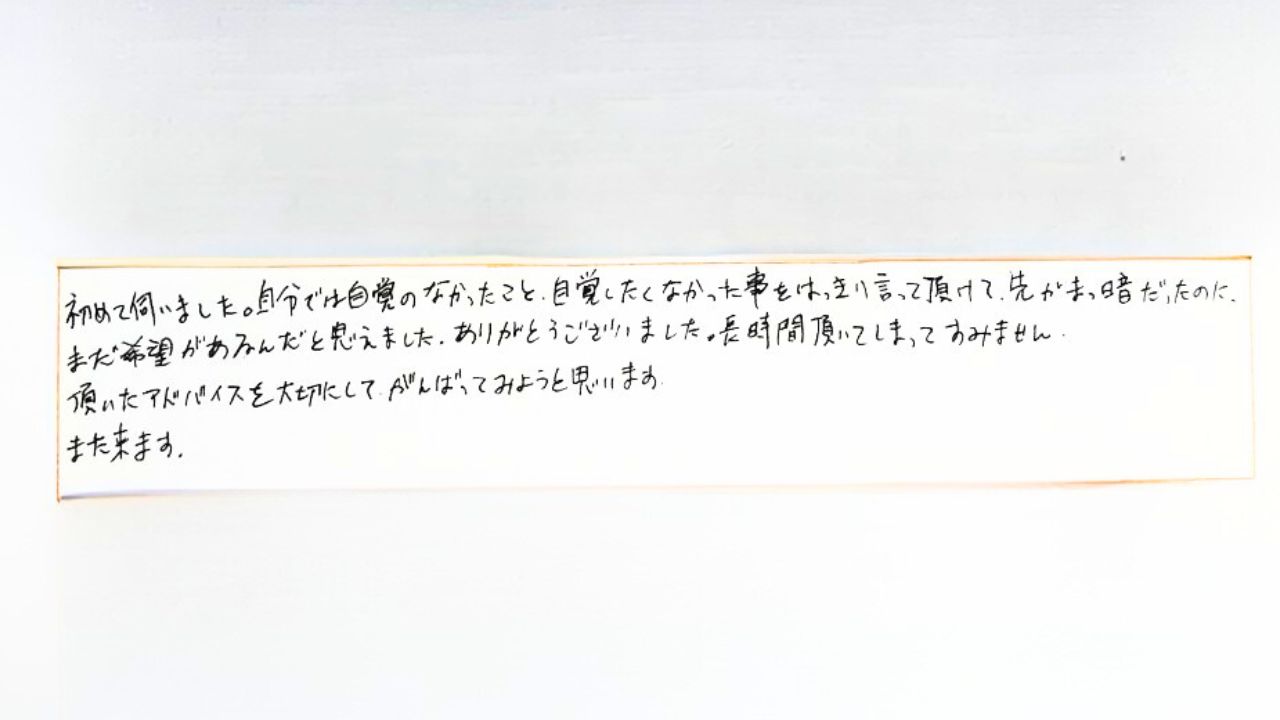 初めて伺いました。自分では自覚のなかったこと、自覚したくなかった事をはっきり言って頂けて、先がまっ暗だったのに、
まだ希望があるんだと思えました。ありがとうございました。長時間頂いてしまってすみません。
頂いたアドバイスを大切にして、がんばってみようと思います。
また来ます。